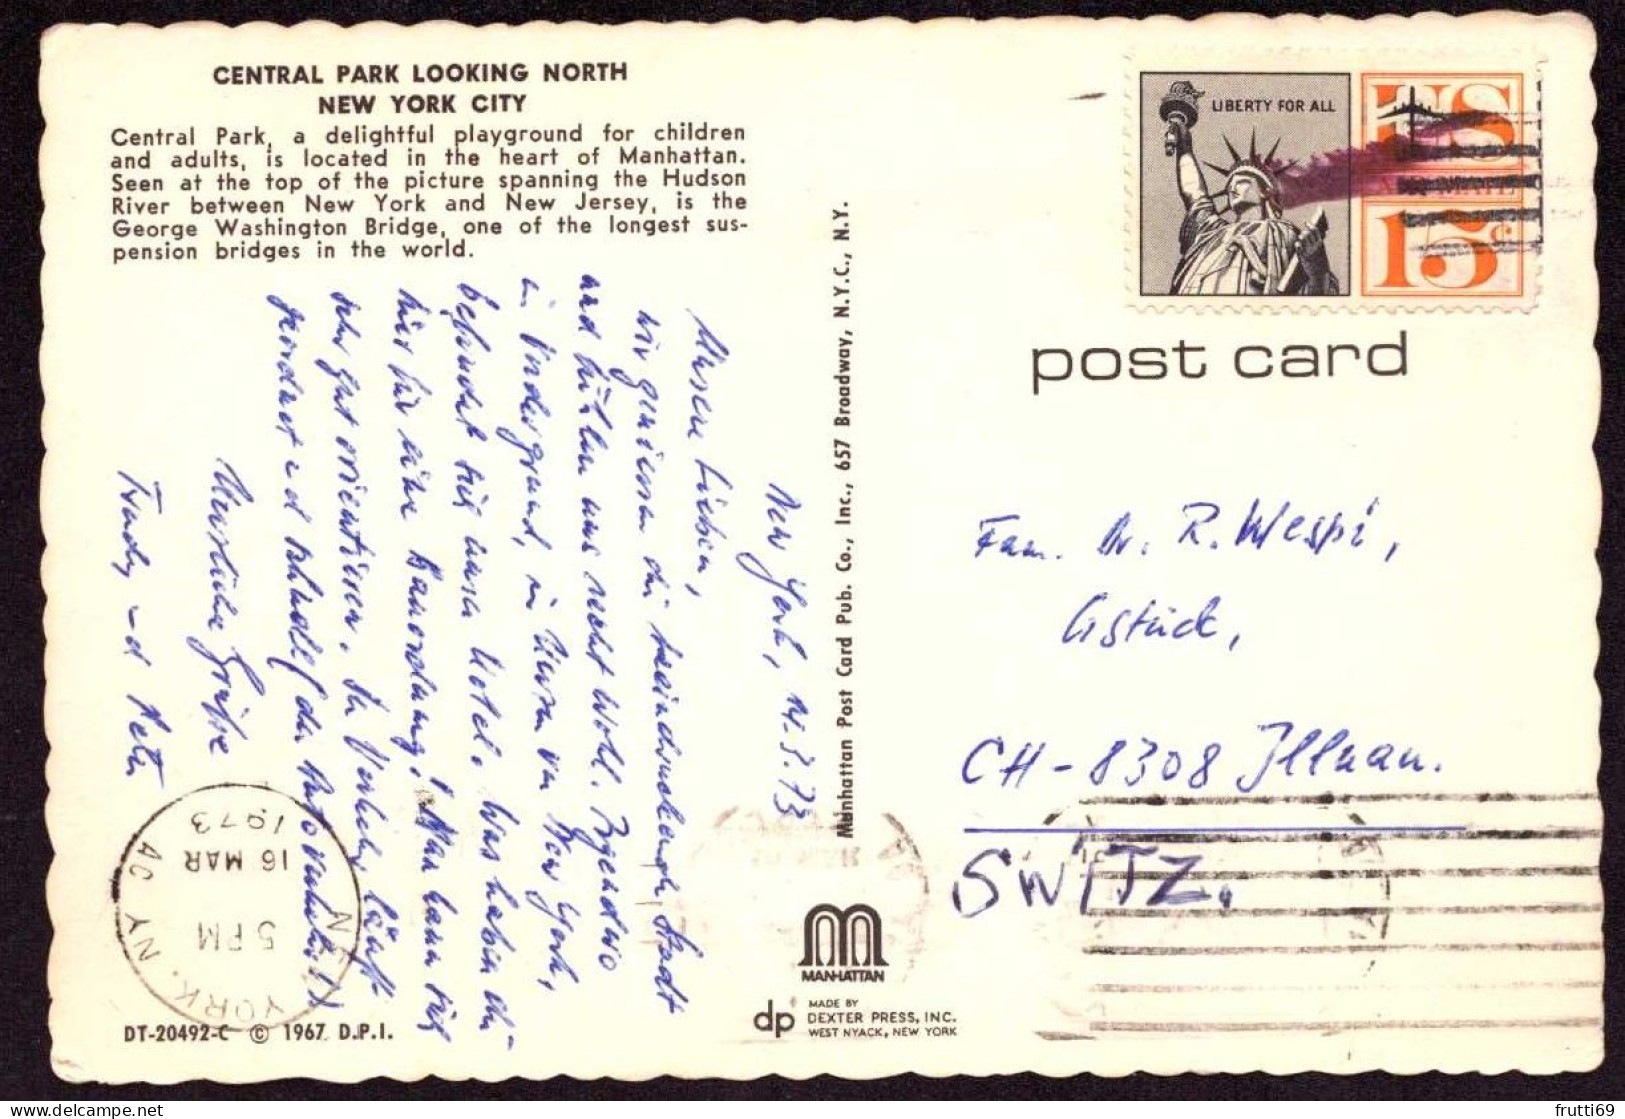 CENTRAL PARK LOOKING NORTH
NEW YORK CITY
Central Park, a delightful playground for children
and adults, is located in the heart of Manhattan.
Seen at the top of the picture spanning the Hudson
River between New York and New Jersey, is the
George Washington Bridge, one of the longest sus-
pension bridges in the world.
New York, 14.3.73
Unsere Lieben,
wir geniessen die beeindruckende Stadt
und fühlen uns recht wohl. Irgendwo
im Vordergrund, im Innern von New York,
befindet sich unser Hotel. Was haben die
hier für eine Bauordnung! Man kann sich
sehr gut orientieren. Der Verkehr läuft
geordnet und
Herzliche Grüsse
Trudy und Peter
YORK, NY AC
5 PM
16 MAR
1973
DT-20492-C © 1967 D.P.I.
Manhattan Post Card Pub. Co., Inc., 657 Broadway, N.Y.C., N.Y.
MANHATTAN
dp MADE BY
DEXTER PRESS, INC.
WEST NYACK, NEW YORK
LIBERTY FOR ALL
US
15c
post card
Fam. Dr. R. Wespi,
Gstück,
CH-8308 Illnau.
SWITZ.
frutti69
delcampe.net